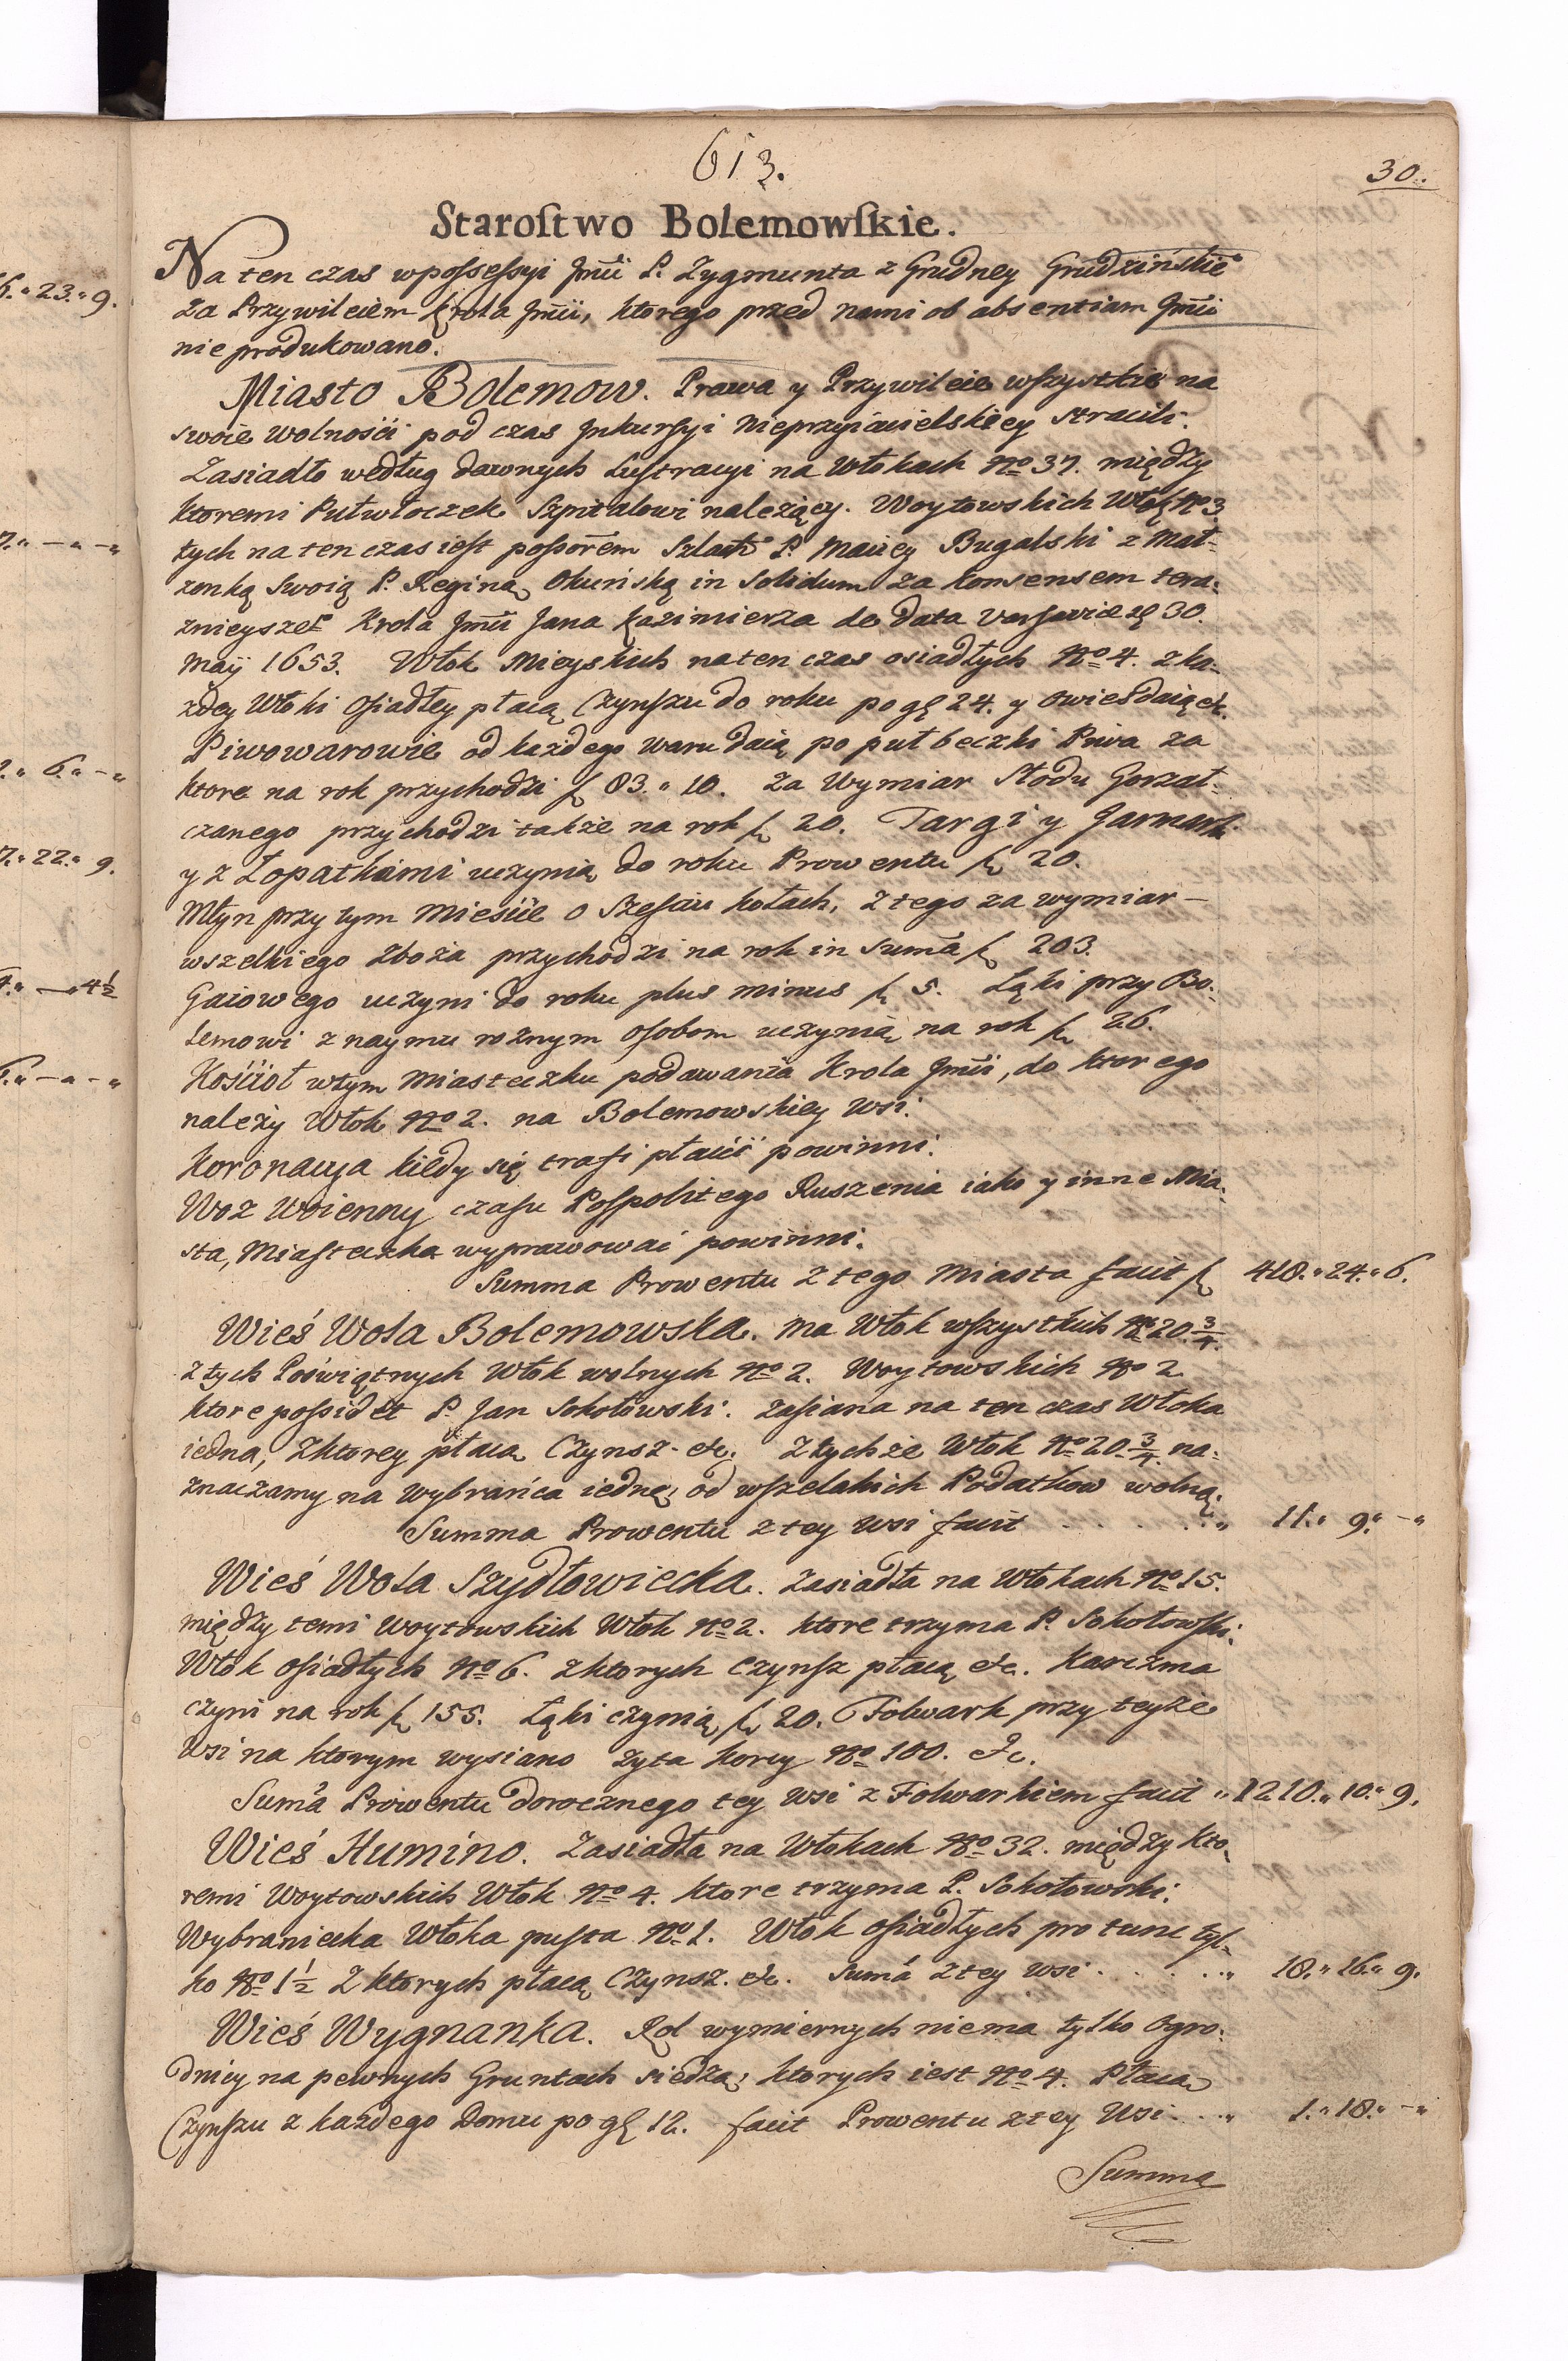 613.
30.
Starostwo Bolemowskie.
Na ten czas w possessyi Jmći P. Zygmunta z Grudney Grudzińskie°
za Przywileiem Krola Jmći, ktorego przed nami ob absentiam Jmći
nie produkowano.
Miasto Bolemow. Prawa y Przywileie wszystkie na
swoie wolnośći pod czas Inkursyi Nieprzyiacielskiey stracili.
Zasiadło według dawnych Lustracyi na Włokach No 37. między
ktoremi Pułwłoczek Szpitalowi należący. Woytowskich Włok No 3.
tych na ten czas iest possorem Szlach° P. Maciey Bugalski z Mał-
żonką swoią P. Reginą Okuńską in Solidum za konsensem tera-
znieysze° Krola Jmći Jana Kazimierza de Data Varsaviae 30.
Maij 1653. Włok Mieyskich na ten czas osiadłych No 4. z ka-
żdey Włoki osiadłey płacą Czynszu do roku po g 24. y Owies daią etc.
Piwowarowie od każdego waru daią po puł beczki Piwa za
ktore na rok przychodzi f 83. " 10. Za Wymiar Słodu Gorzał-
czanego przychodzi także na rok f 20. Targi y Jarmarki
y z Łopatkami uczynią do roku Prowentu f 20.
Młyn przy tym Mieście o Sześciu kołach, z tego za wymiar —
wszelkiego zboża przychodzi na rok in Suma f 203.
Gaiowego uczyni do roku plus minus f 5. Łąki przy Bo-
lemowi z naymu rożnym osobom uczynią na rok f 26.
Kośćioł w tym Miasteczku podawania Krola Jmći, do ktorego
należy Włok No 2. na Bolemowskiey Wsi.
Koronacya kiedy się trafi płacić powinni.
Woz Woienny czasu Pospolitego Ruszenia iako y inne Mia-
sta, Miasteczka wyprawować powinni.
Summa Prowentu z tego Miasta facit f 418. " 24. " 6.
Wieś Wola Bolemowska. Ma Włok wszystkich No 20 3/4.
z tych Poświątnych Włok wolnych No 2. Woytowskich No 2
ktore possidet P. Jan Sokołowski. Zasiana na ten czas Włoka
iedna, z ktorey płaca Czynsz etc. Z tychże Włok No 20 3/4. na-
znaczamy na Wybrańca iednę, od wszelakich Podatkow wolną.
Summa Prowentu z tey Wsi facit . . . . . " 11. " 9. " - "
Wieś Wola Szydłowiecka. Zasiadła na Włokach No 15.
między temi Woytowskich Włok No 2. ktore trzyma P. Sokołowski.
Włok osiadłych No 6. z ktorych Czynsz płacą etc. Karczma
czyni na rok f 155. Łąki czynią f 20. Folwark przy teyże
Wsi na ktorym wysiano żyta korcy No 100. etc.
Suma Prowentu dorocznego tey Wsi z Folwarkiem facit " 1210. " 10. " 9.
Wieś Humino. Zasiadła na Włokach No 32. między kto-
remi Woytowskich Włok No 4. ktore trzyma P. Sokołowski.
Wybraniecka Włoka pusta No 1. Włok osiadłych pro tunc tyl-
ko No 1 1/2 z ktorych płacą Czynsz etc. Suma z tey wsi . . . . . " 18. " 16. " 9.
Wieś Wygnanka. Rol wymiernych niema tylko Ogro-
dnicy na pewnych Gruntach siedzą, ktorych iest No 4. Płacą
Czynszu z każdego Domu po g 12. facit Prowentu z tey Wsi . . . " 1. " 18. " - "
Summa
6. " 23. " 9.
7. " — " - "
2. " 6. " - "
7. " 22. " 9.
" — " 4 1/2
" — " - "